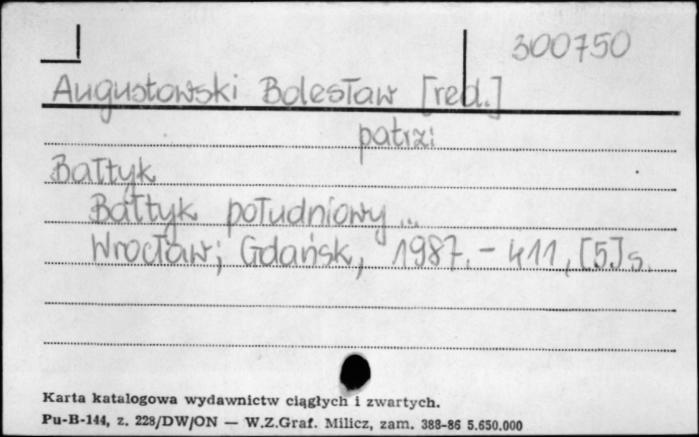 300750
Augustowski Bolesław [red.]
patrz:
Bałtyk
Bałtyk południowy...
Wrocław; Gdańsk, 1987. - 411, [5] s.
Karta katalogowa wydawnictw ciągłych i zwartych.
Pu-B-144, z. 228/DW/ON — W.Z.Graf. Milicz, zam. 388-86 5.650.000